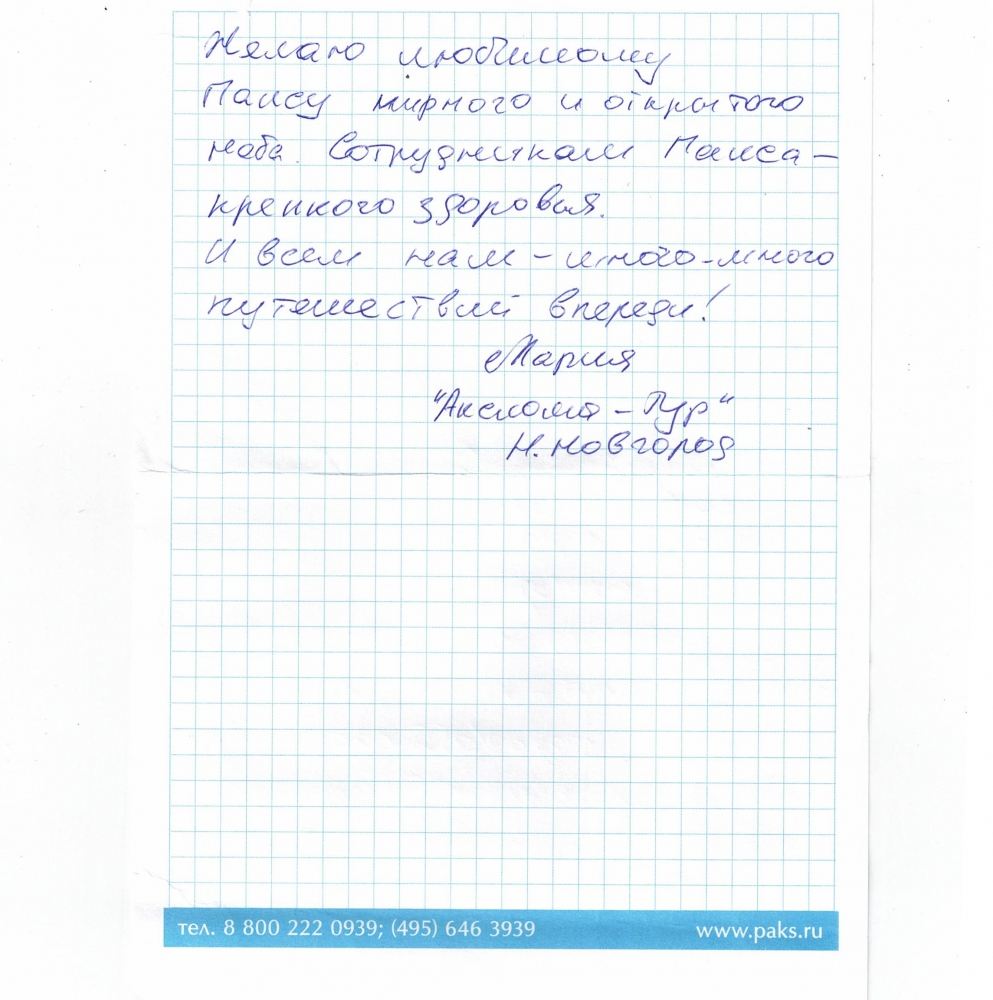 Желаю любимому
Паксу мирного и открытого
неба. Сотрудникам Пакса -
крепкого здоровья.
И всем нам - много-много
путешествий впереди!
Мария
"Аксиома - Тур"
Н. Новгород
тел. 8 800 222 0939; (495) 646 3939
www.paks.ru